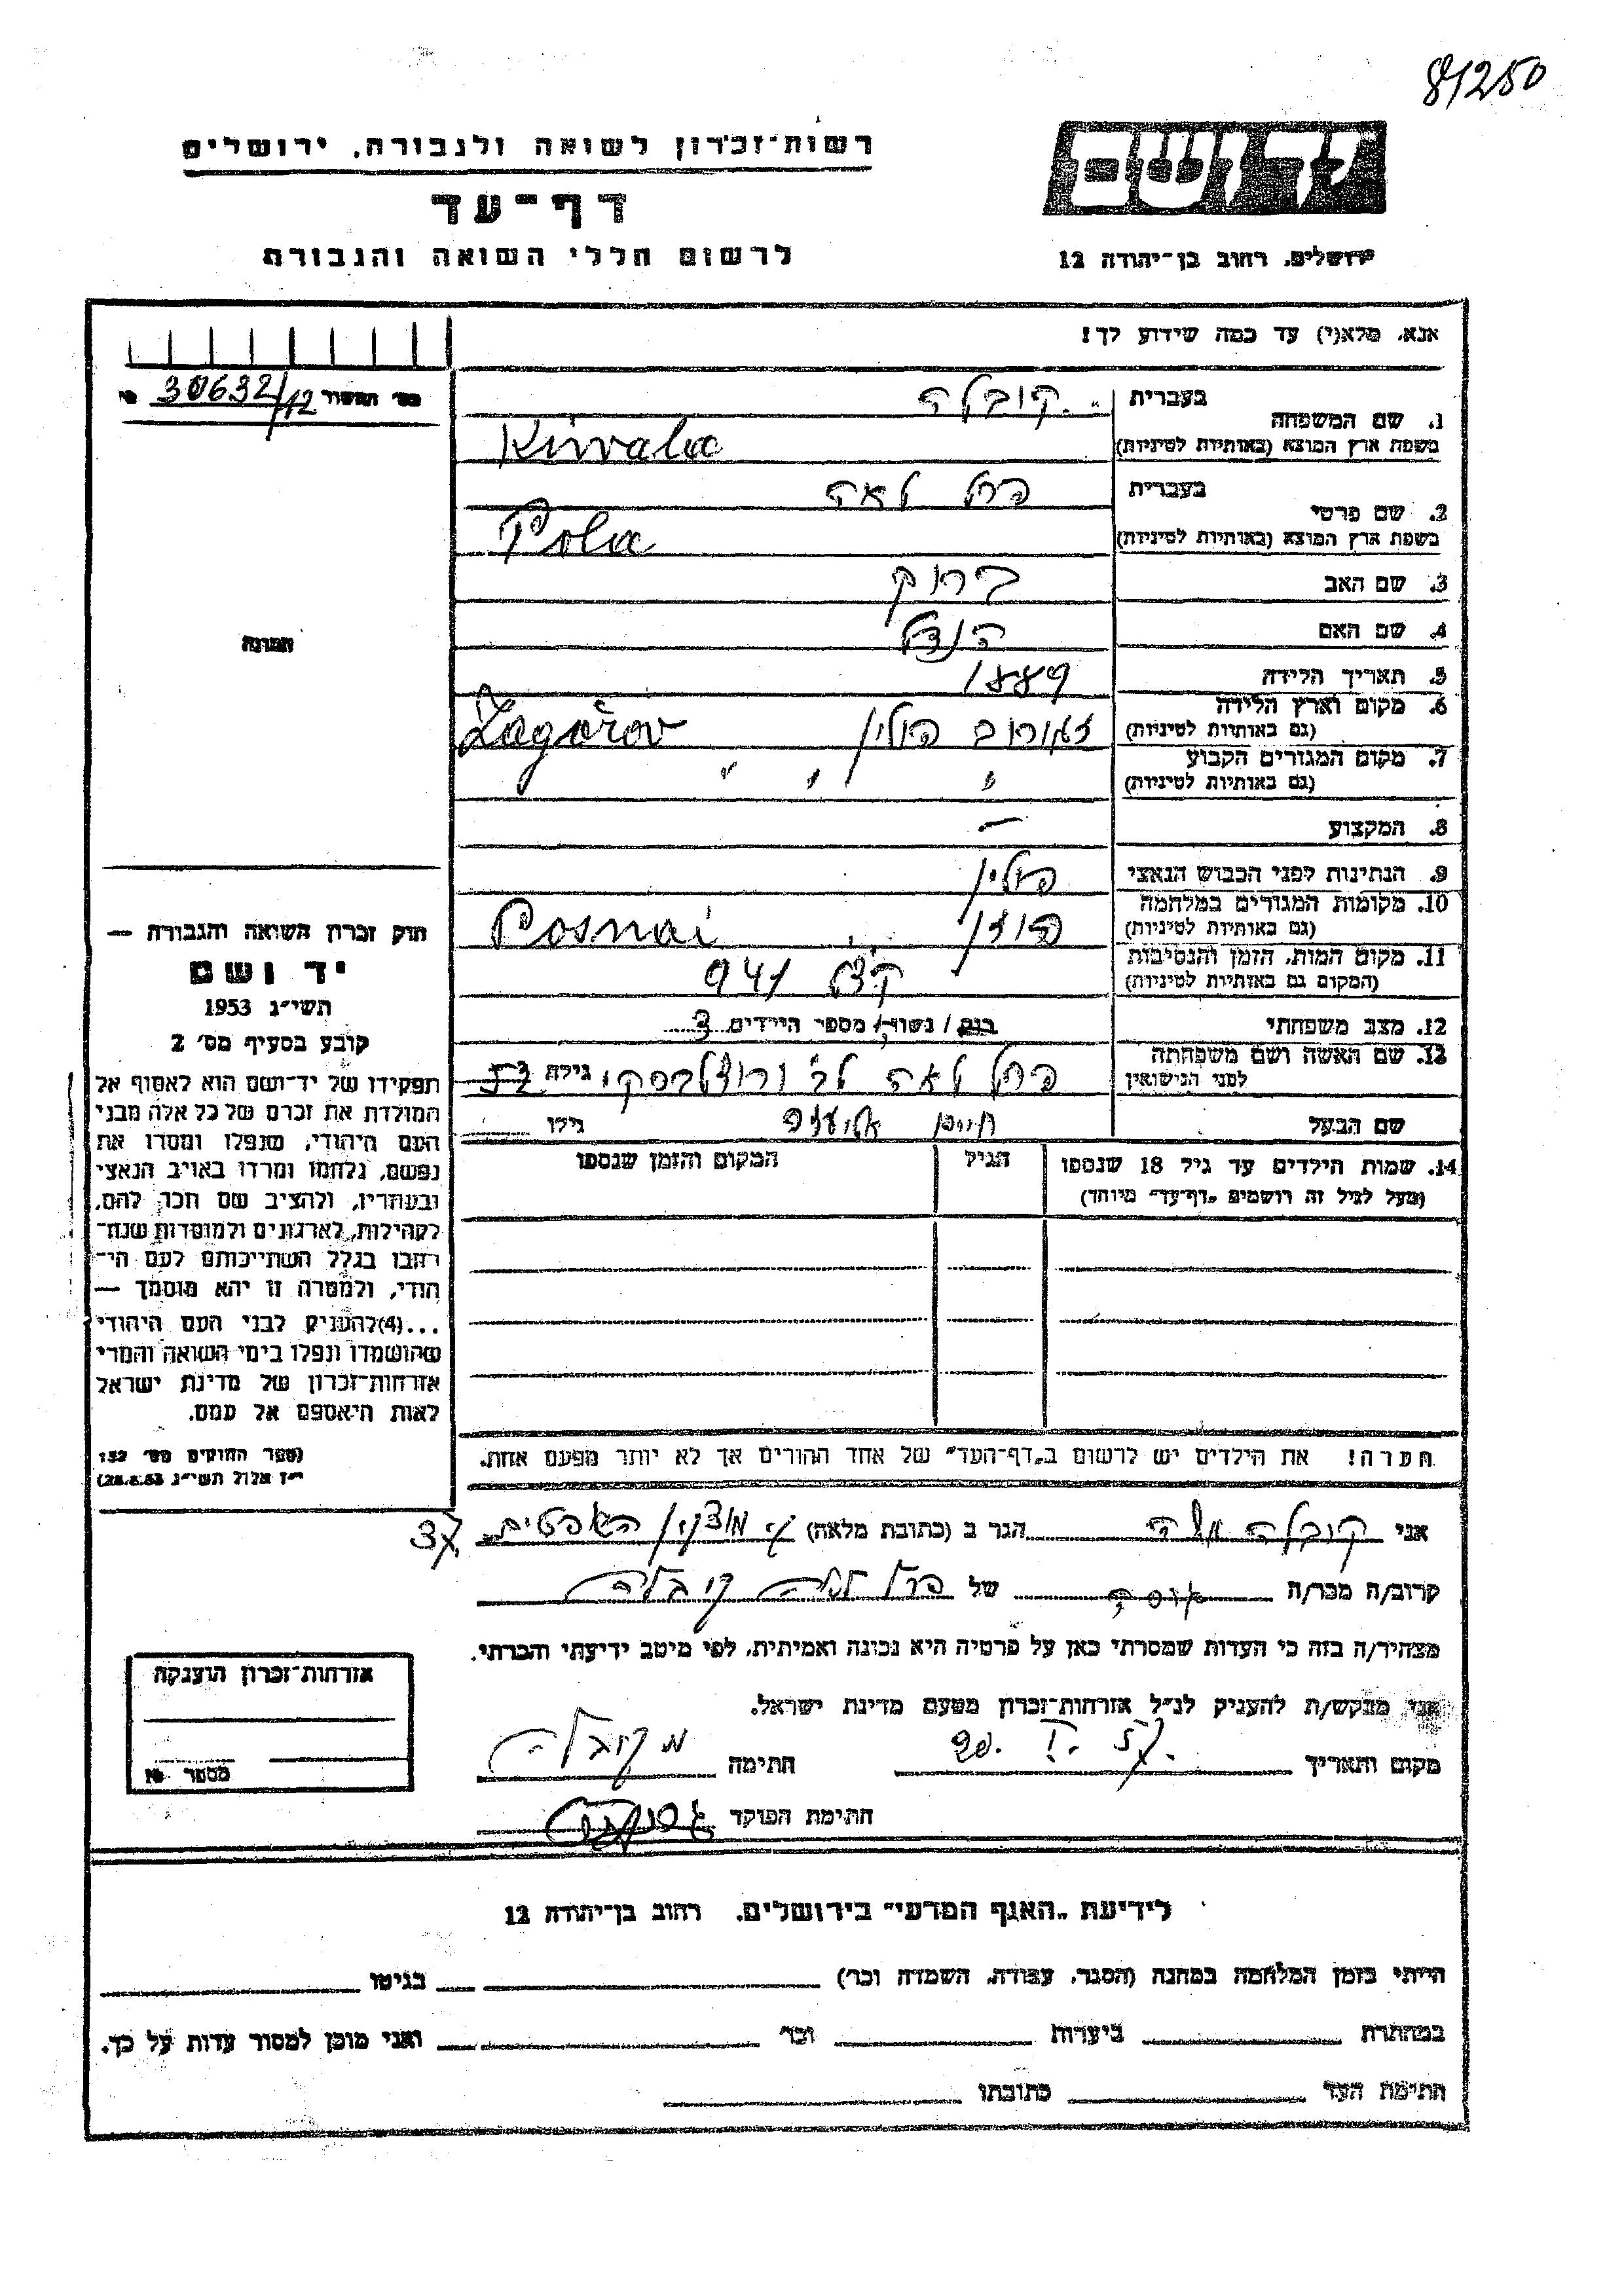 81250
רשות־זכרון לשואה ולגבורה, ירושלים
דף־עד
לרשום חללי השואה והגבורה
יד ושם
ירושלים, רחוב בן־יהודה 12
אנא, מלא(י) עד כמה שידוע לך!
מס' 30632/12 №
1. שם המשפחה
בעברית קובלה
בשפת ארץ המוצא (באותיות לטיניות) Kuvala
2. שם פרטי
בעברית פרל לאה
בשפת ארץ המוצא (באותיות לטיניות) Pola
3. שם האב ברוך
4. שם האם הנדל
5. תאריך הלידה 1889
6. מקום וארץ הלידה
(גם באותיות לטיניות) זגורוב פולין Zagórov
7. מקום המגורים הקבוע
(גם באותיות לטיניות) " " "
8. המקצוע —
9. הנתינות לפני הכבוש הנאצי פולין
10. מקומות המגורים במלחמה
(גם באותיות לטיניות) פוזנן Posnai
11. מקום המות, הזמן והנסיבות
(המקום גם באותיות לטיניות) 941
12. מצב משפחתי רווק / נשוי / מספר הילדים 3
13. שם האשה ושם משפחתה
לפני הנישואין פרל לאה לב' גילה 52
שם הבעל חיים גילו
14. שמות הילדים עד גיל 18 שנספו
(מעל לגיל זה רושמים „דף־עד" מיוחד)
הגיל
המקום והזמן שנספו
הערה! את הילדים יש לרשום ב„דף־העד" של אחד ההורים אך לא יותר מפעם אחת.
תמונה
חוק זכרון השואה והגבורה —
יד ושם
תשי"ג 1953
קובע בסעיף מס' 2
תפקידו של יד־ושם הוא לאסוף אל
המולדת את זכרם של כל אלה מבני
העם היהודי, שנפלו ומסרו את
נפשם, נלחמו ומרדו באויב הנאצי
ובעוזריו, ולהציב שם וזכר להם,
לקהילות, לארגונים ולמוסדות שנח־
רבו בגלל השתייכותם לעם הי־
הודי, ולמטרה זו יהא מוסמך —
...(4)להעניק לבני העם היהודי
שהושמדו ונפלו בימי השואה והמרי
אזרחות־זכרון של מדינת ישראל
לאות היאספם אל עמם.
(ספר החוקים מס' 132
י"ז אלול תשי"ג 28.8.53)
אני קובלה משה הגר ב (כתובת מלאה) ק. מוצקין האפטים 37
קרוב/ה מכר/ה של פרל לאה קובלה
מצהיר/ה בזה כי העדות שמסרתי כאן על פרטיה היא נכונה ואמיתית, לפי מיטב ידיעתי והכרתי.
אני מבקש/ת להעניק לנ"ל אזרחות־זכרון מטעם מדינת ישראל.
מקום ותאריך 20. I. 57 חתימה מ קובלה
חתימת הפוקד
אזרחות־זכרון הוענקה
מספר №
לידיעת „האגף המדעי" בירושלים, רחוב בן־יהודה 12
הייתי בזמן המלחמה במחנה (הסגר, עבודה, השמדה וכו') בגיטו
במחתרת ביערות וכו' ואני מוכן למסור עדות על כך.
חתימת העד כתובתו